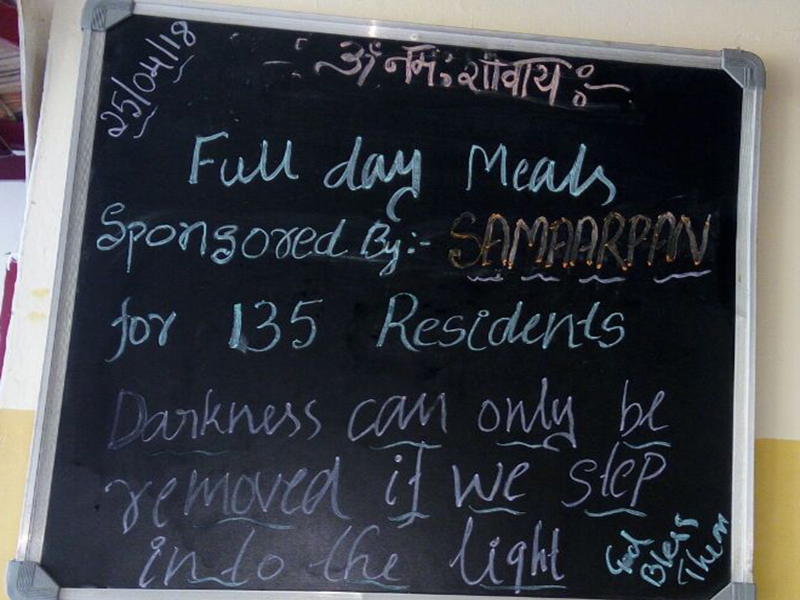 25/04/18
ॐ नमः शिवाय :
Full day Meals
Sponsored By:- SAMAARPAN
for 135 Residents
Darkness can only be
removed if we step
into the light
God
Bless
Them